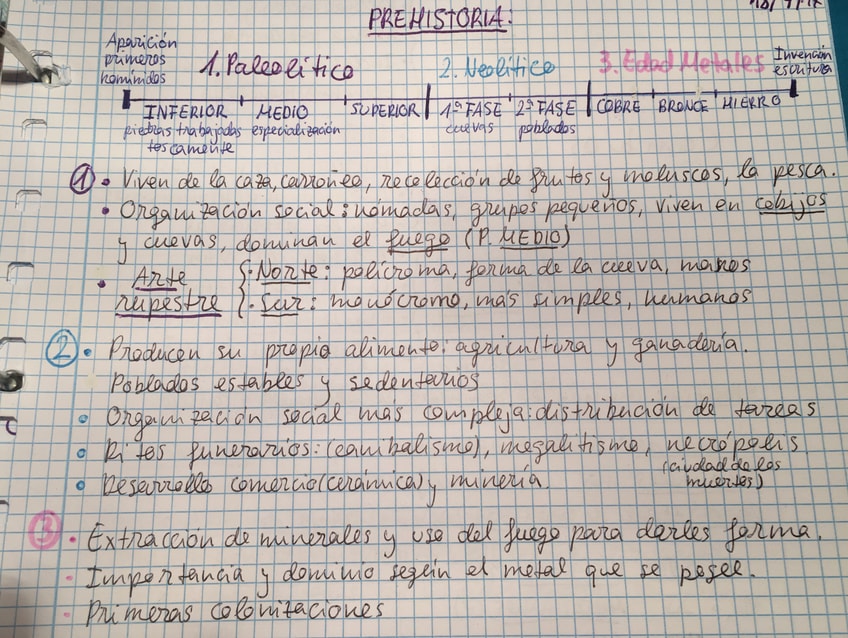 PREHISTORIA:
Aparición
primeros
homínidos
1. Paleolítico
2. Neolítico
3. Edad Metales
Invención
escritura
INFERIOR
MEDIO
SUPERIOR
1ª FASE
2ª FASE
COBRE
BRONCE
HIERRO
piedras trabajadas
toscamente
especialización
cuevas
poblados
① • Viven de la caza, carroñeo, recolección de frutos y moluscos, la pesca.
• Organización social: nómadas, grupos pequeños, viven en cobijos
y cuevas, dominan el fuego (P. MEDIO)
• Arte
rupestre
{ · Norte: polícroma, forma de la cueva, manos
· Sur: monócromo, más simples, humanos
② • Producen su propio alimento: agricultura y ganadería.
Poblados estables y sedentarios
• Organización social más compleja: distribución de tareas
• Ritos funerarios: (canibalismo), megalitismo, necrópolis
(ciudad de los
muertos)
• Desarrollo comercio (cerámica) y minería.
③ • Extracción de minerales y uso del fuego para darles forma.
- Importancia y dominio según el metal que se posee.
- Primeras colonizaciones